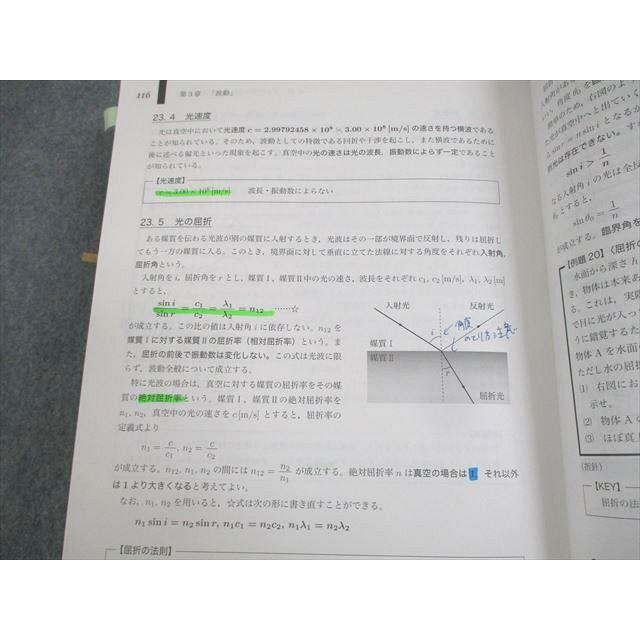 116 第3章 「波動」
23.4 光速度
光は真空中において光速度 c = 2.99792458 × 10⁸ ≒ 3.00 × 10⁸ [m/s] の速さを持つ横波である
ことが知られている。そのため、波動としての特徴である回折や干渉を起こし、また横波であるために
後に述べる偏光といった現象を起こす。真空中の光の速さは光の波長、振動数によらず一定であること
が知られている。
【光速度】
c = 3.00 × 10⁸ [m/s] 波長・振動数によらない
23.5 光の屈折
ある媒質を伝わる光波が別の媒質に入射するとき、光波はその一部が境界面で反射し、残りは屈折し
てもう一方の媒質に入る。このとき、境界面に対して垂直に立てた法線に対する角度をそれぞれ入射角、
屈折角という。
入射角を i、屈折角を r とし、媒質Ⅰ、媒質Ⅱ中の光の速さ、波長をそれぞれ c₁, c₂ [m/s], λ₁, λ₂ [m]
とすると、
sin i / sin r = c₁ / c₂ = λ₁ / λ₂ = n₁₂ ……☆
が成立する。この比の値は入射角 i に依存しない。n₁₂ を
媒質Ⅰに対する媒質Ⅱの屈折率（相対屈折率）という。ま
た、屈折の前後で振動数は変化しない。この式は光波に限
らず、波動全般について成立する。
特に光波の場合は、真空に対する媒質の屈折率をその媒
質の絶対屈折率という。媒質Ⅰ、媒質Ⅱの絶対屈折率を
n₁, n₂、真空中の光の速さを c [m/s] とすると、屈折率の
定義式より
n₁ = c / c₁, n₂ = c / c₂
が成立する。n₁₂, n₁, n₂ の間には n₁₂ = n₂ / n₁ が成立する。絶対屈折率 n は真空の場合は 1、それ以外
は 1 より大きくなると考えてよい。
なお、n₁, n₂ を用いると、☆式は次の形に書き直すことができる。
n₁ sin i = n₂ sin r, n₁c₁ = n₂c₂, n₁λ₁ = n₂λ₂
【屈折の法則】
入射光
反射光
i
角度
のとり方注意
媒質Ⅰ
媒質Ⅱ
r
屈折光
sin i > 1/n
なる入射角 i の光は全
sin θ₀ = 1/n
が成立する。臨界角を
【例題20】〈屈折の
水面から深さ h
き、物体は本来あ
る。これは、実際
で目に光が入っ
うに錯覚するた
物体 A を水面
ただし水の屈折
(1) 右図にお
示せ。
(2) 物体 A
(3) ほぼ真上
(指針)
【KEY】
屈折の法